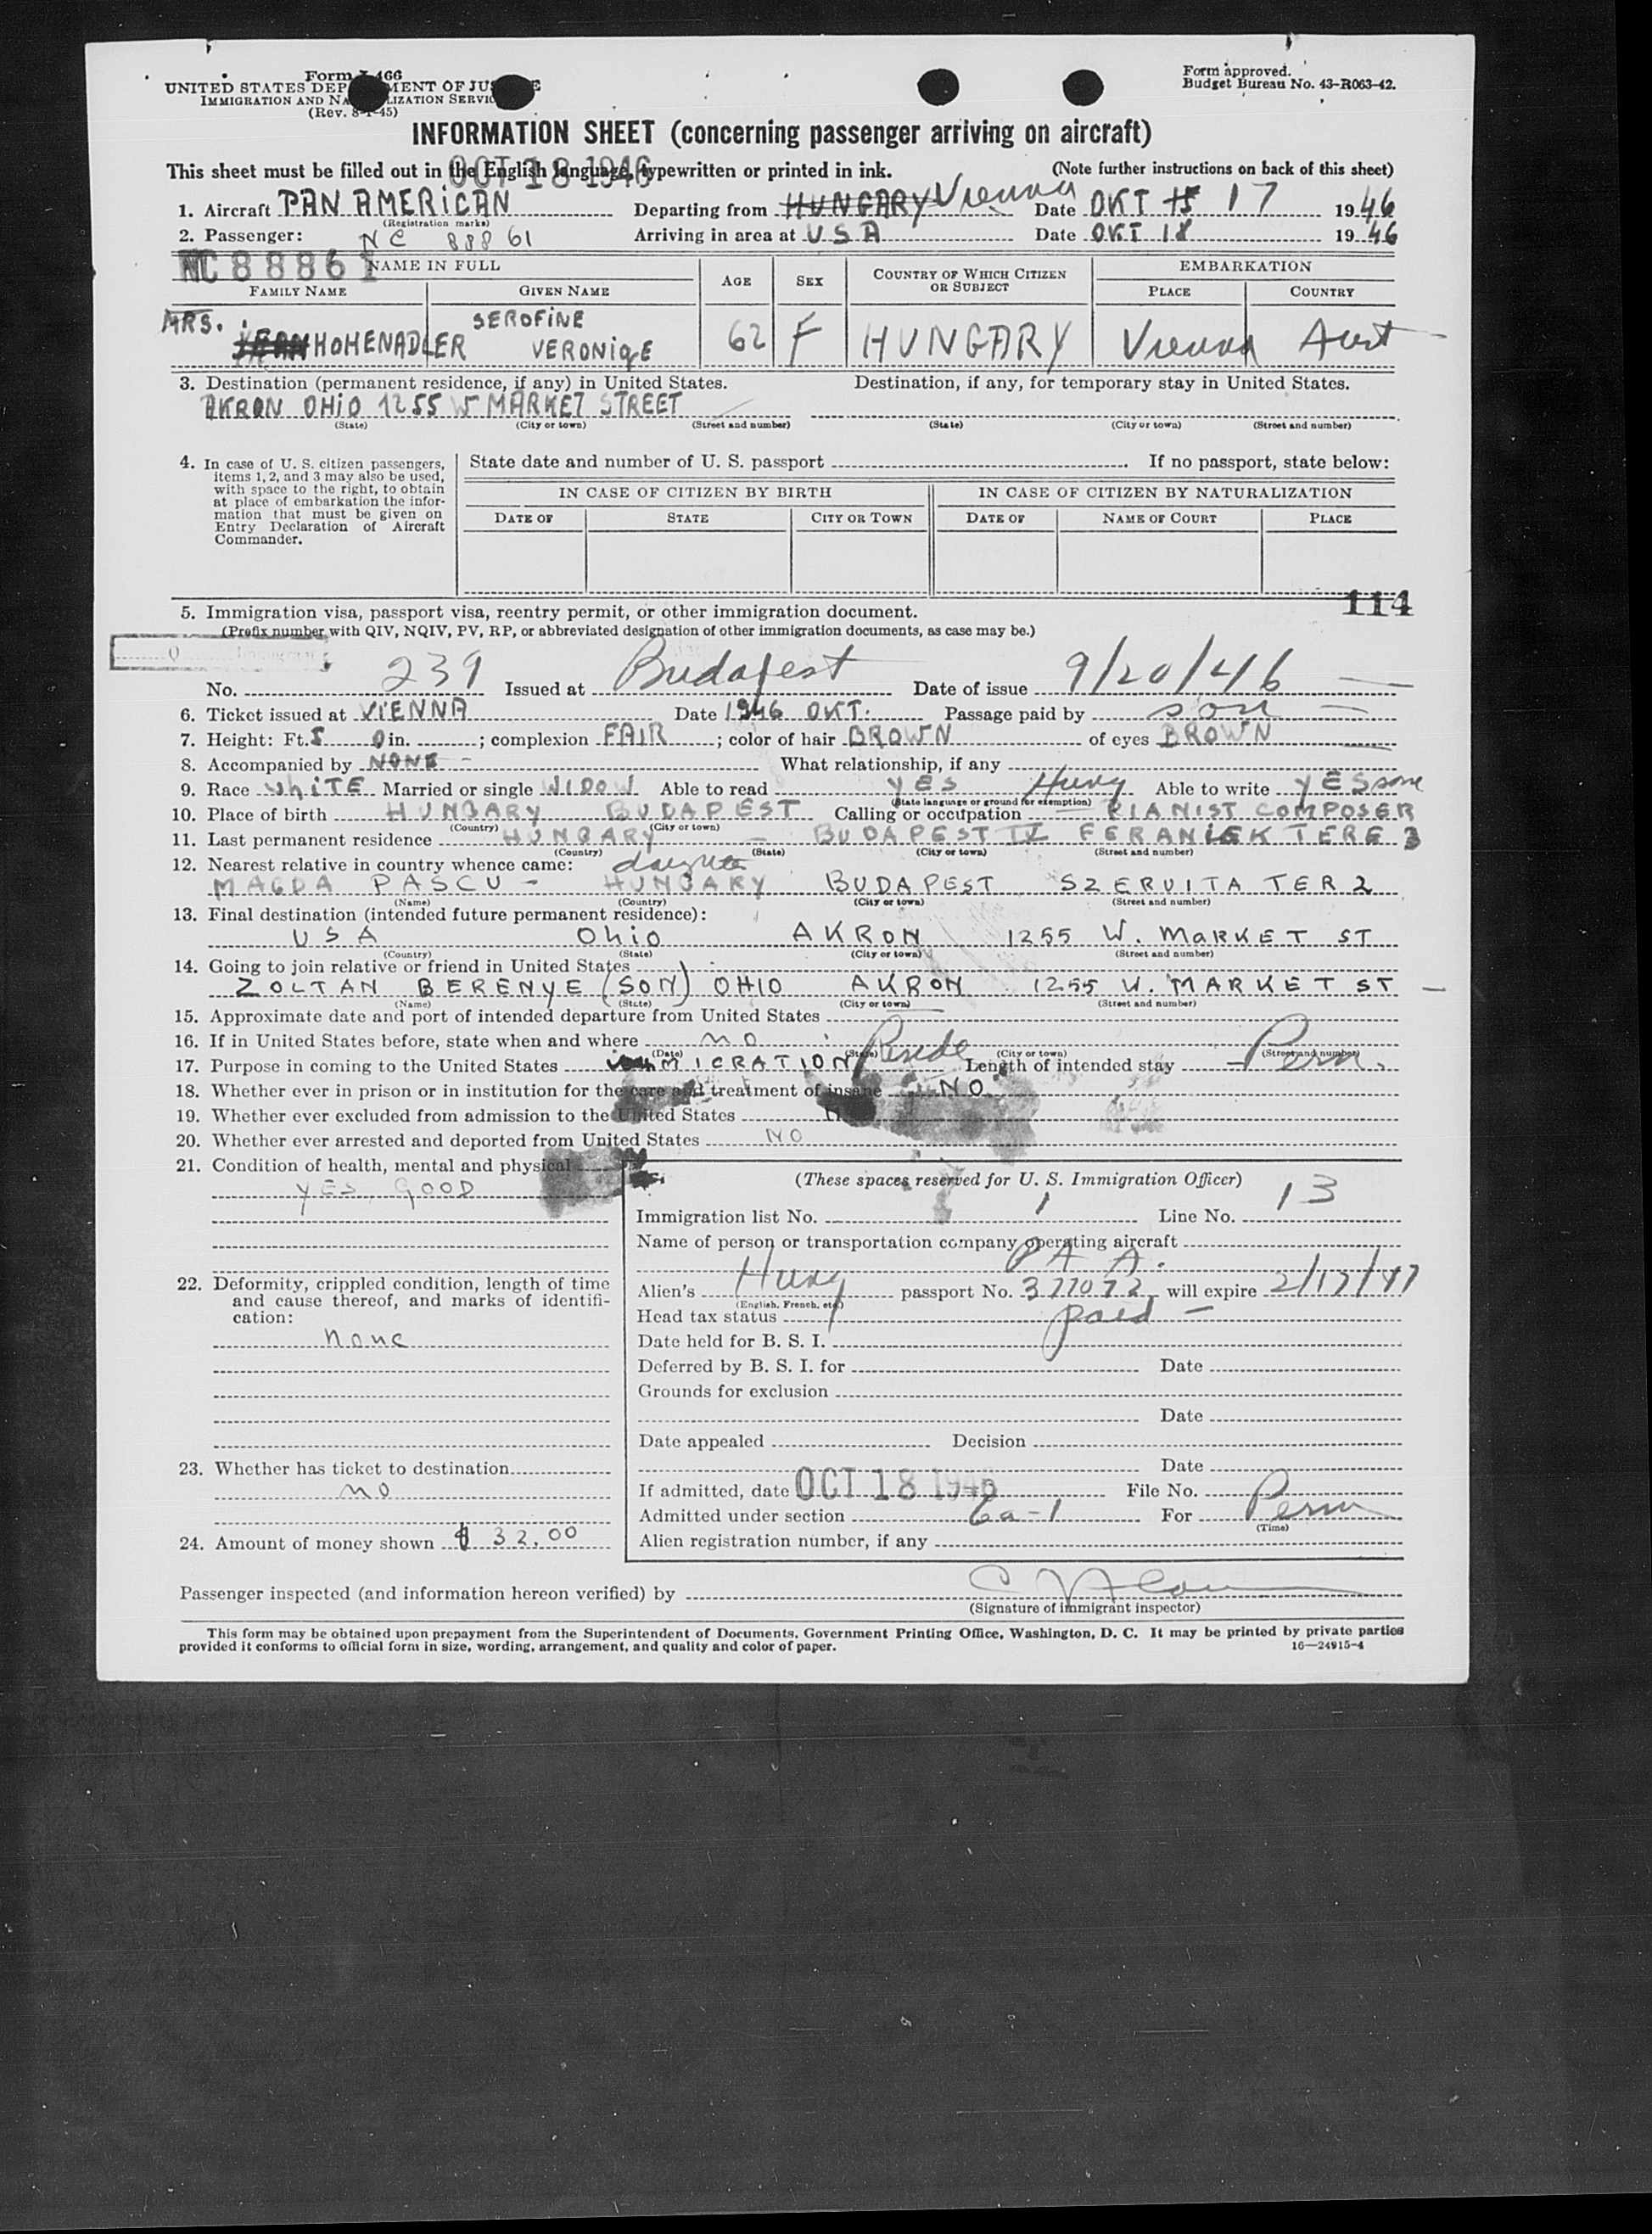 Form I-466
UNITED STATES DEPARTMENT OF JUSTICE
IMMIGRATION AND NATURALIZATION SERVICE
(Rev. 8-1-45)
Form approved.
Budget Bureau No. 43-R063-42.
INFORMATION SHEET (concerning passenger arriving on aircraft)
This sheet must be filled out in the English language, typewritten or printed in ink. (Note further instructions on back of this sheet)
OCT 18 1946
1. Aircraft PAN AMERICAN Departing from HUNGARY Vienna Date OKT 15 17 1946
(Registration marks)
2. Passenger: NC 88861 Arriving in area at USA Date OKT 18 1946
NC88861
NAME IN FULL AGE SEX COUNTRY OF WHICH CITIZEN OR SUBJECT EMBARKATION
FAMILY NAME GIVEN NAME PLACE COUNTRY
MRS. SEROFINE
HOHENADLER VERONIQE 62 F HUNGARY Vienna Aust
3. Destination (permanent residence, if any) in United States. Destination, if any, for temporary stay in United States.
AKRON OHIO 1255 W MARKET STREET
(State) (City or town) (Street and number) (State) (City or town) (Street and number)
4. In case of U. S. citizen passengers, items 1, 2, and 3 may also be used, with space to the right, to obtain at place of embarkation the information that must be given on Entry Declaration of Aircraft Commander.
State date and number of U. S. passport If no passport, state below:
IN CASE OF CITIZEN BY BIRTH IN CASE OF CITIZEN BY NATURALIZATION
DATE OF STATE CITY OR TOWN DATE OF NAME OF COURT PLACE
114
5. Immigration visa, passport visa, reentry permit, or other immigration document.
(Prefix number with QIV, NQIV, PV, RP, or abbreviated designation of other immigration documents, as case may be.)
No. 239 Issued at Budapest Date of issue 9/20/46
6. Ticket issued at VIENNA Date 1946 OKT. Passage paid by son
7. Height: Ft. 5 0 in. ; complexion FAIR ; color of hair BROWN of eyes BROWN
8. Accompanied by NONE - What relationship, if any
9. Race WhiTE Married or single WIDOW Able to read YES Hung Able to write YES same
(State language or ground for exemption)
10. Place of birth HUNGARY BUDAPEST Calling or occupation PIANIST COMPOSER
(Country) (City or town)
11. Last permanent residence HUNGARY - BUDAPEST IV FERANIEK TERE 3
(Country) (State) (City or town) (Street and number)
12. Nearest relative in country whence came: daughter
MAGDA PASCU - HUNGARY BUDAPEST SZERVITA TER 2
(Name) (Country) (City or town) (Street and number)
13. Final destination (intended future permanent residence):
USA Ohio AKRON 1255 W. MARKET ST
(Country) (State) (City or town) (Street and number)
14. Going to join relative or friend in United States
ZOLTAN BERENYE (SON) OHIO AKRON 1255 W. MARKET ST
(Name) (State) (City or town) (Street and number)
15. Approximate date and port of intended departure from United States
16. If in United States before, state when and where NO
(Date) (State) (City or town) (Street and number)
17. Purpose in coming to the United States IMMIGRATION Reside Length of intended stay Perm.
18. Whether ever in prison or in institution for the care and treatment of insane NO.
19. Whether ever excluded from admission to the United States
20. Whether ever arrested and deported from United States NO
21. Condition of health, mental and physical
YES, GOOD
22. Deformity, crippled condition, length of time and cause thereof, and marks of identification:
none
23. Whether has ticket to destination
NO
24. Amount of money shown $ 32.00
(These spaces reserved for U. S. Immigration Officer)
Immigration list No. 1 Line No. 13
Name of person or transportation company operating aircraft
P A A.
Alien's Hung passport No. 377072 will expire 2/17/47
(English, French, etc.)
Head tax status paid -
Date held for B. S. I.
Deferred by B. S. I. for Date
Grounds for exclusion
Date
Date appealed Decision
Date
If admitted, date OCT 18 1946 File No.
Admitted under section 6a-1 For Perm
(Time)
Alien registration number, if any
Passenger inspected (and information hereon verified) by
(Signature of immigrant inspector)
This form may be obtained upon prepayment from the Superintendent of Documents, Government Printing Office, Washington, D. C. It may be printed by private parties
provided it conforms to official form in size, wording, arrangement, and quality and color of paper. 16—24915-4